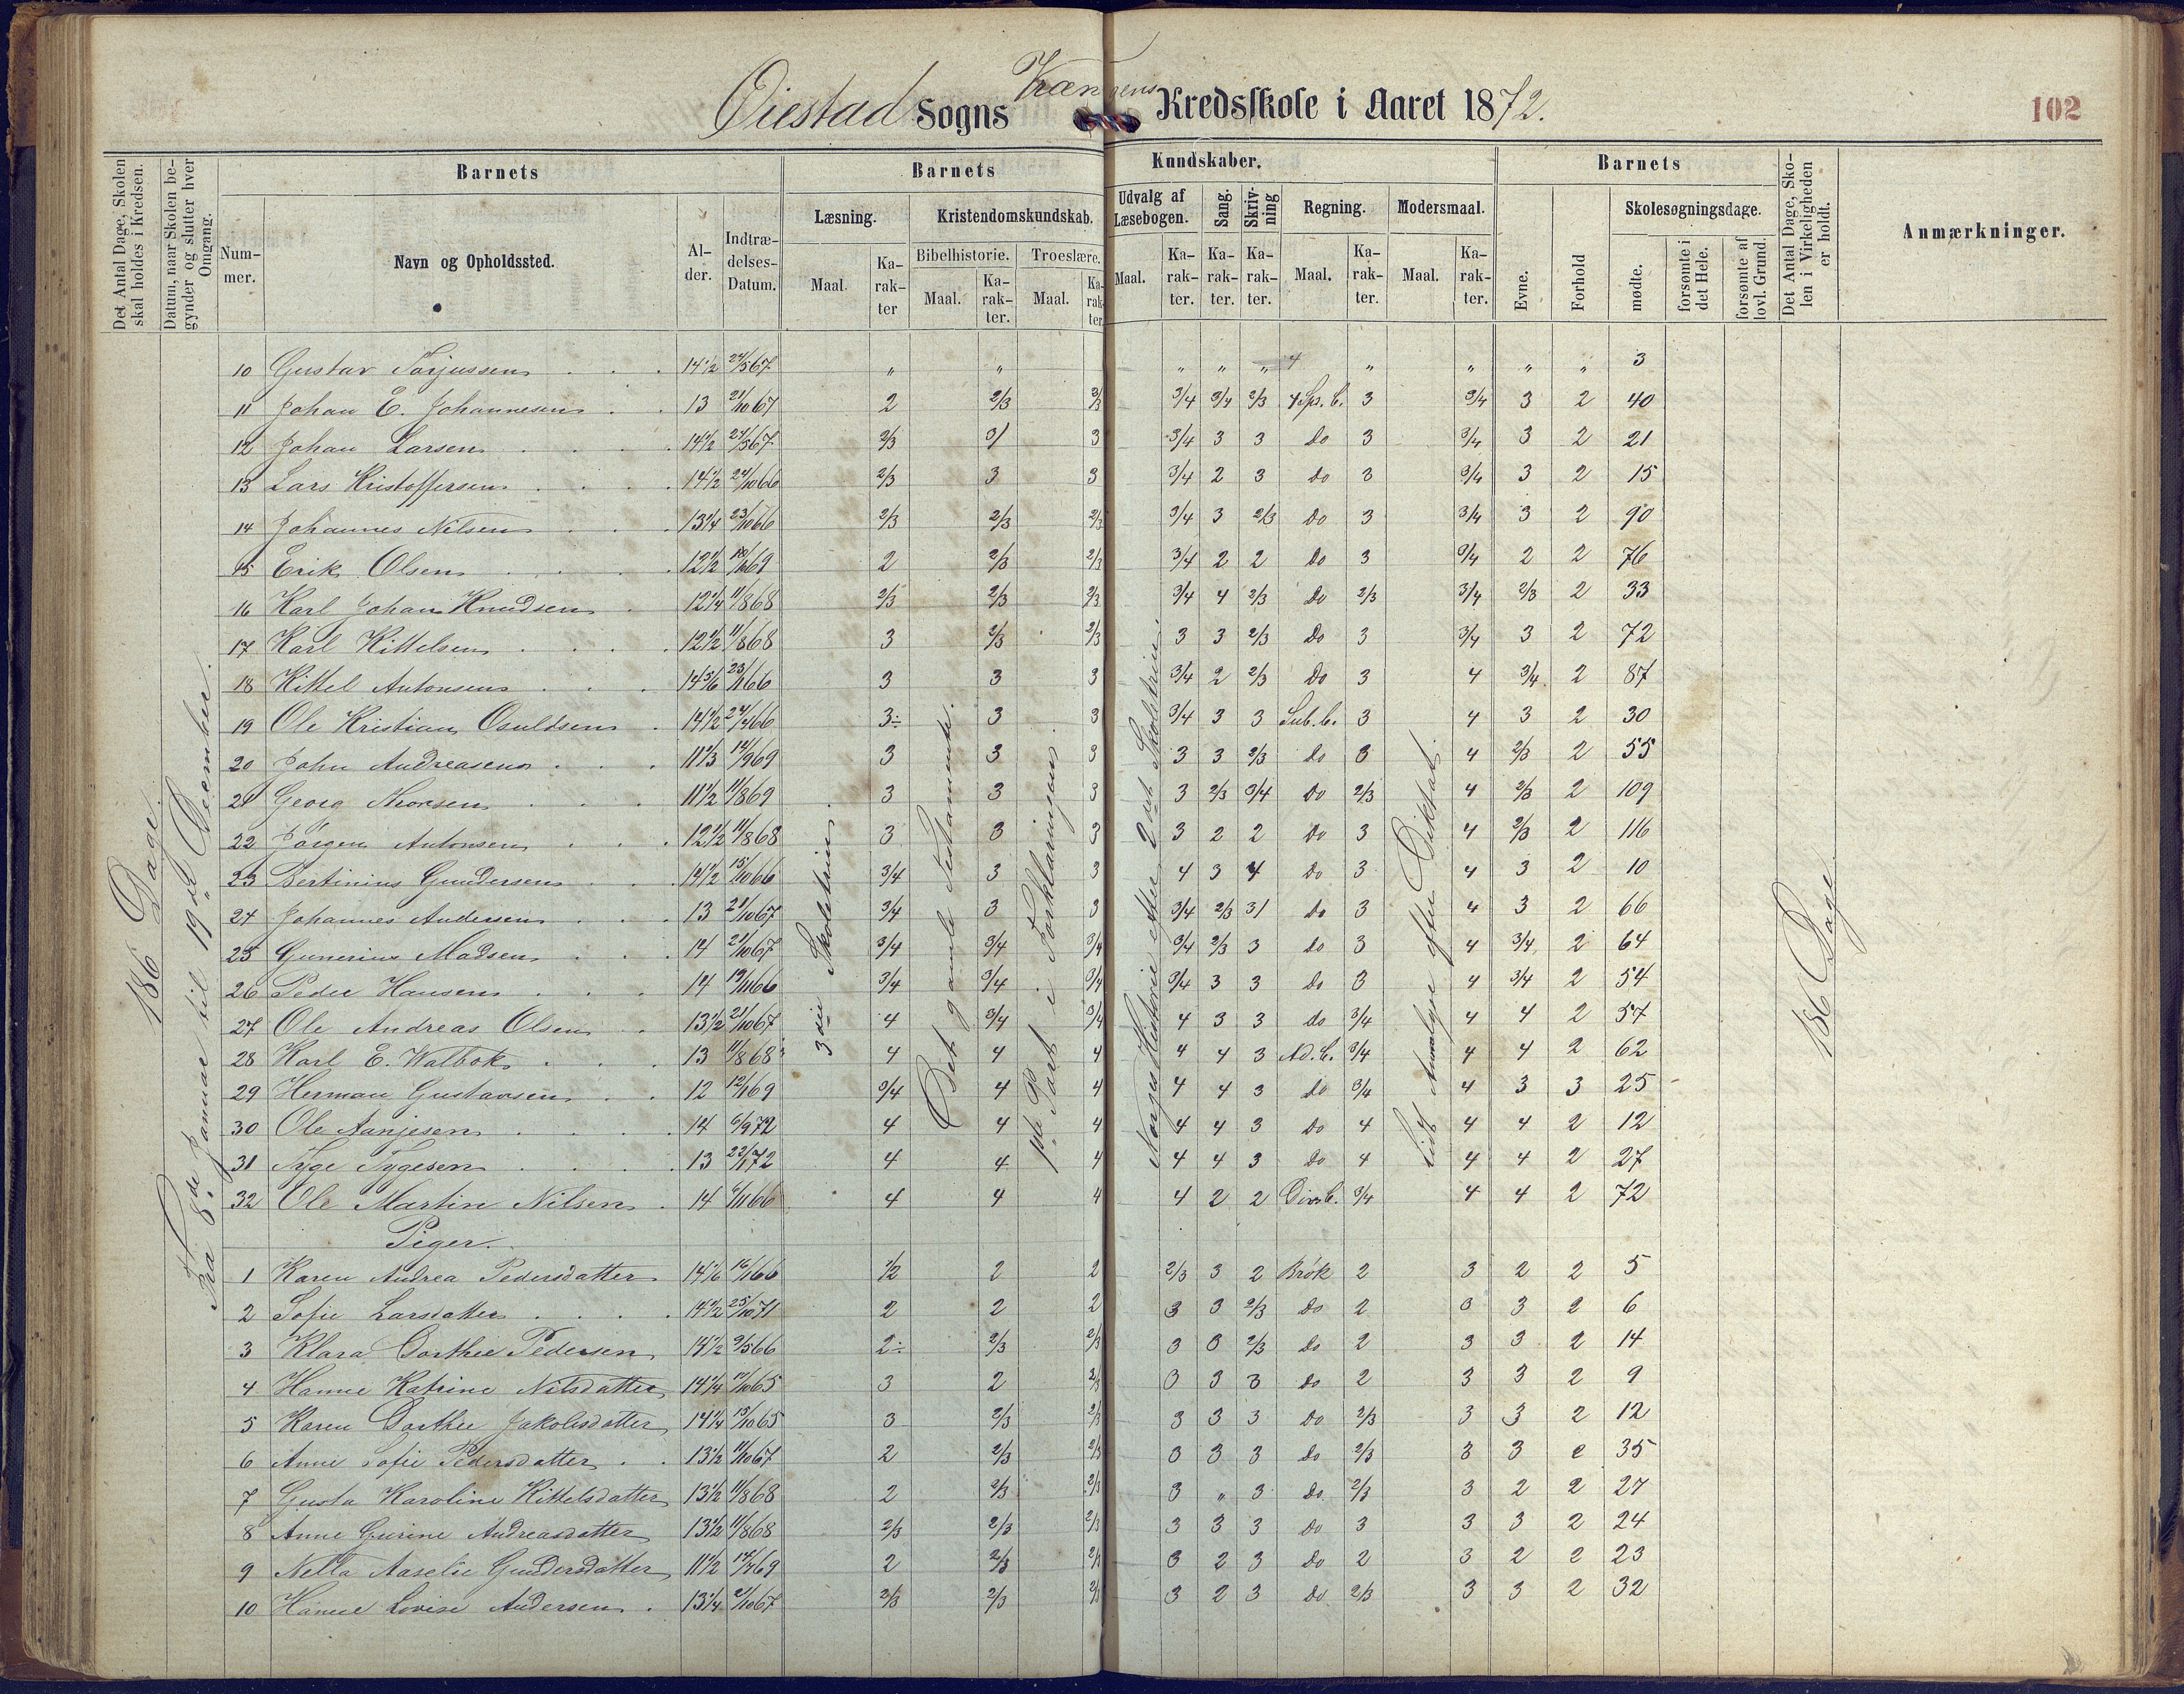 Øiestad Sogns Kredsskole i Aaret 1872.
102
Det Antal Dage, Skolen skal holdes i Kredsen.
Datum, naar Skolen begynder og slutter hver Omgang.
Barnets
Barnets
Kundskaber.
Barnets
Det Antal Dage, Skolen i Virkeligheden er holdt.
Anmærkninger.
Nummer.
Navn og Opholdssted.
Alder.
Indtrædelses-Datum.
Læsning.
Kristendomskundskab.
Udvalg af Læsebogen.
Sang.
Skrivning
Regning.
Modersmaal.
Evne.
Forhold
Skolesøgningsdage.
Bibelhistorie.
Troeslære.
Maal.
Karakter
Maal.
Karakter.
Maal.
Karakter.
Maal.
Karakter.
Karakter.
Karakter.
Maal.
Karakter.
Maal.
Karakter.
mødte.
forsømte i det Hele.
forsømte af lovl. Grund.
186 Dage.
Fra 8de Januar til 19de December.
3die Skoletrin.
Det gamle Testamente.
1ste Part i Forklaringen.
Norges Historie efter 2det Skoletrin.
Lidt Analyse efter Diktat.
186 Dage
10 Gustav Torjussen 14½ 24/5 67 " " " " " 4 " " " " 3
11 Johan E. Johannesen 13 21/10 67 2 2/3 2/3 3/4 3/4 2/3 4 Sps. b. 3 3/4 3 2 40
12 Johan Larsen 14½ 24/5 67 2/3 3/ 3 3/4 3 3 do 3 3/4 3 2 21
13 Lars Kristoffersen 14½ 24/10 66 2/3 3 3 3/4 2 3 do 3 3/4 3 2 15
14 Johannes Nilsen 13¼ 23/10 66 2/3 2/3 2/3 3/4 3 2/3 do 3 3/4 3 2 90
15 Erik Olsen 12½ 69 2 2/3 2/3 3/4 2 2 do 3 3/4 2 2 76
16 Karl Johan Knudsen 12¼ 11/8 68 2/3 2/3 2/3 3/4 4 2/3 do 2/3 3/4 2/3 2 33
17 Karl Kittelsen 12½ 11/8 68 3 2/3 2/3 3 3 2/3 do 3 3/4 3 2 72
18 Kittel Antonsen 14 5/6 23/1 66 3 3 3 3/4 2 2/3 do 3 4 3/4 2 87
19 Ole Kristian Osuldsen 14½ 24/4 66 3÷ 3 3 3/4 3 3 Sub. b. 3 4 3 2 30
20 John Andreasen 11⅓ 14/9 69 3 3 3 3 3 2/3 do 3 4 2/3 2 55
21 Georg Thorsen 11½ 11/8 69 3 3 3 3 2/3 3/4 do 2/3 4 2/3 2 109
22 Jørgen Antonsen 12½ 11/8 68 3 3 3 3 2 2 do 3 4 2/3 2 116
23 Bertinius Gundersen 14½ 15/10 66 3/4 3 3 4 3 4 do 3 4 3 2 10
24 Johannes Andersen 13 21/10 67 3/4 3 3 3/4 2/3 3/ do 3 4 3 2 66
25 Gunerius Madsen 14 21/10 67 3/4 3/4 3/4 3/4 2/3 3 do 3 4 3/4 2 64
26 Peder Hansen 14 19/11 66 3/4 3/4 3/4 3/4 3 3 do 3 4 3/4 2 54
27 Ole Andreas Olsen 13½ 21/10 67 4 3/4 3/4 4 3 3 do 3/4 4 4 2 57
28 Karl E. Walbok 13 11/8 68 4 4 4 4 4 3 Ad. b. 3/4 4 4 2 62
29 Herman Gustavsen 12 12/1 69 3/4 4 4 4 4 3 do 3/4 4 3 3 25
30 Ole Aanjesen 14 6/9 72 4 4 4 4 4 3 do 4 4 4 2 12
31 Tyge Tygesen 13 22/1 72 4 4 4 4 4 3 do 4 4 4 2 27
32 Ole Martin Nilsen 14 6/11 66 4 4 4 4 2 2 Divs b. 3/4 4 4 2 72
Piger.
1 Karen Andrea Pedersdatter 14⅙ 16/1 66 1/2 2 2 2/3 3 2 Brøk 2 3 2 2 5
2 Sofie Larsdatter 14½ 25/10 71 2 2 2 3 3 2/3 do 2 3 3 2 6
3 Klara Dorthee Pedersen 14½ 9/5 66 2÷ 2/3 2/3 3 3 2/3 do 2 3 3 2 14
4 Hanne Katrine Nilsdatter 14¼ 17/10 65 3 2 2/3 3 3 3 do 2 3 3 2 9
5 Karen Dorthee Jakobsdatter 14¼ 13/10 65 3 2/3 2/3 3 3 3 do 2/3 3 3 2 12
6 Anne Sofie Pedersdatter 13½ 11/10 67 2 2/3 2/3 3 3 3 do 2/3 3 3 2 35
7 Gusta Karoline Kittelsdatter 13½ 11/8 68 2 2/3 2/3 3 " 3 do 2/3 3 2 2 27
8 Anne Gurine Andreasdatter 13½ 11/8 68 2/3 2/3 2/3 3 3 3 do 3 3 3 2 24
9 Nella Aaselie Gundersdatter 11½ 14/4 69 2 2/3 2/3 3 2 3 do 2 3 2 2 23
10 Hanne Lovise Andersen 13¼ 21/10 67 2/3 2/3 2/3 3 2 3 do 2/3 3 3 2 32